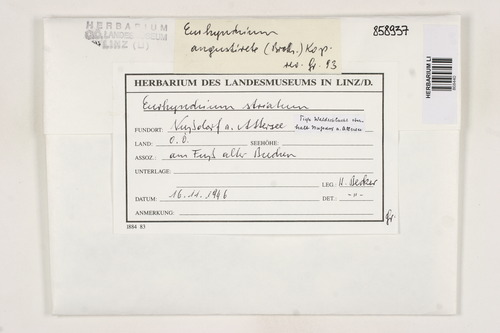 HERBARIUM
OÖ. LANDESMUSEUM
LINZ (LI)
Eurhynchium
angustirete (Broth.) Kop.
rev. Gr. 93
858937
HERBARIUM LI
HERBARIUM DES LANDESMUSEUMS IN LINZ/D.
Eurhynchium striatum
FUNDORT: Nußdorf a. Attersee
LAND: O.Ö. SEEHÖHE:
ASSOZ.: am Fuß alter Buchen
UNTERLAGE:
LEG.: H. Becker
DATUM: 16.11.1946 DET.: -"-
ANMERKUNG:
Gr.
1884 83